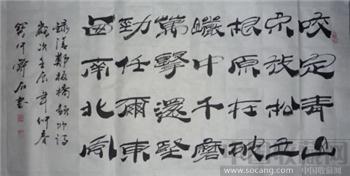 咬定青山
不放松立
根原在破
巖中千磨
萬擊還堅
勁任爾東
西南北風
錄清鄭板橋
歲次壬辰年仲春
石書
中国收藏网
www.socang.com